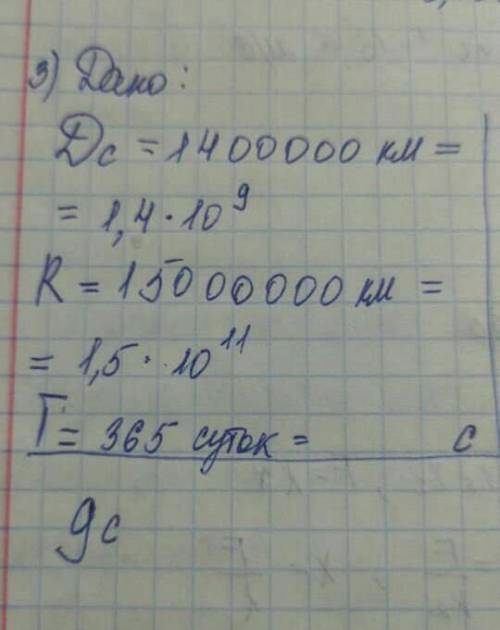 3) Дано:
Dc = 1400000 км =
= 1,4 · 10⁹
R = 15000000 км =
= 1,5 · 10¹¹
T = 365 суток = с
gc